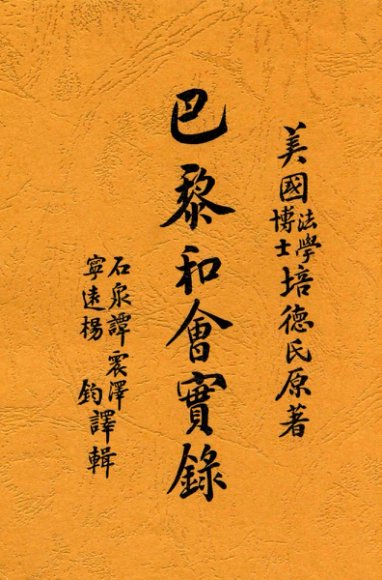 美國法學博士培德氏原著
巴黎和會實錄
石泉譚震澤
寧遠楊鈞譯輯